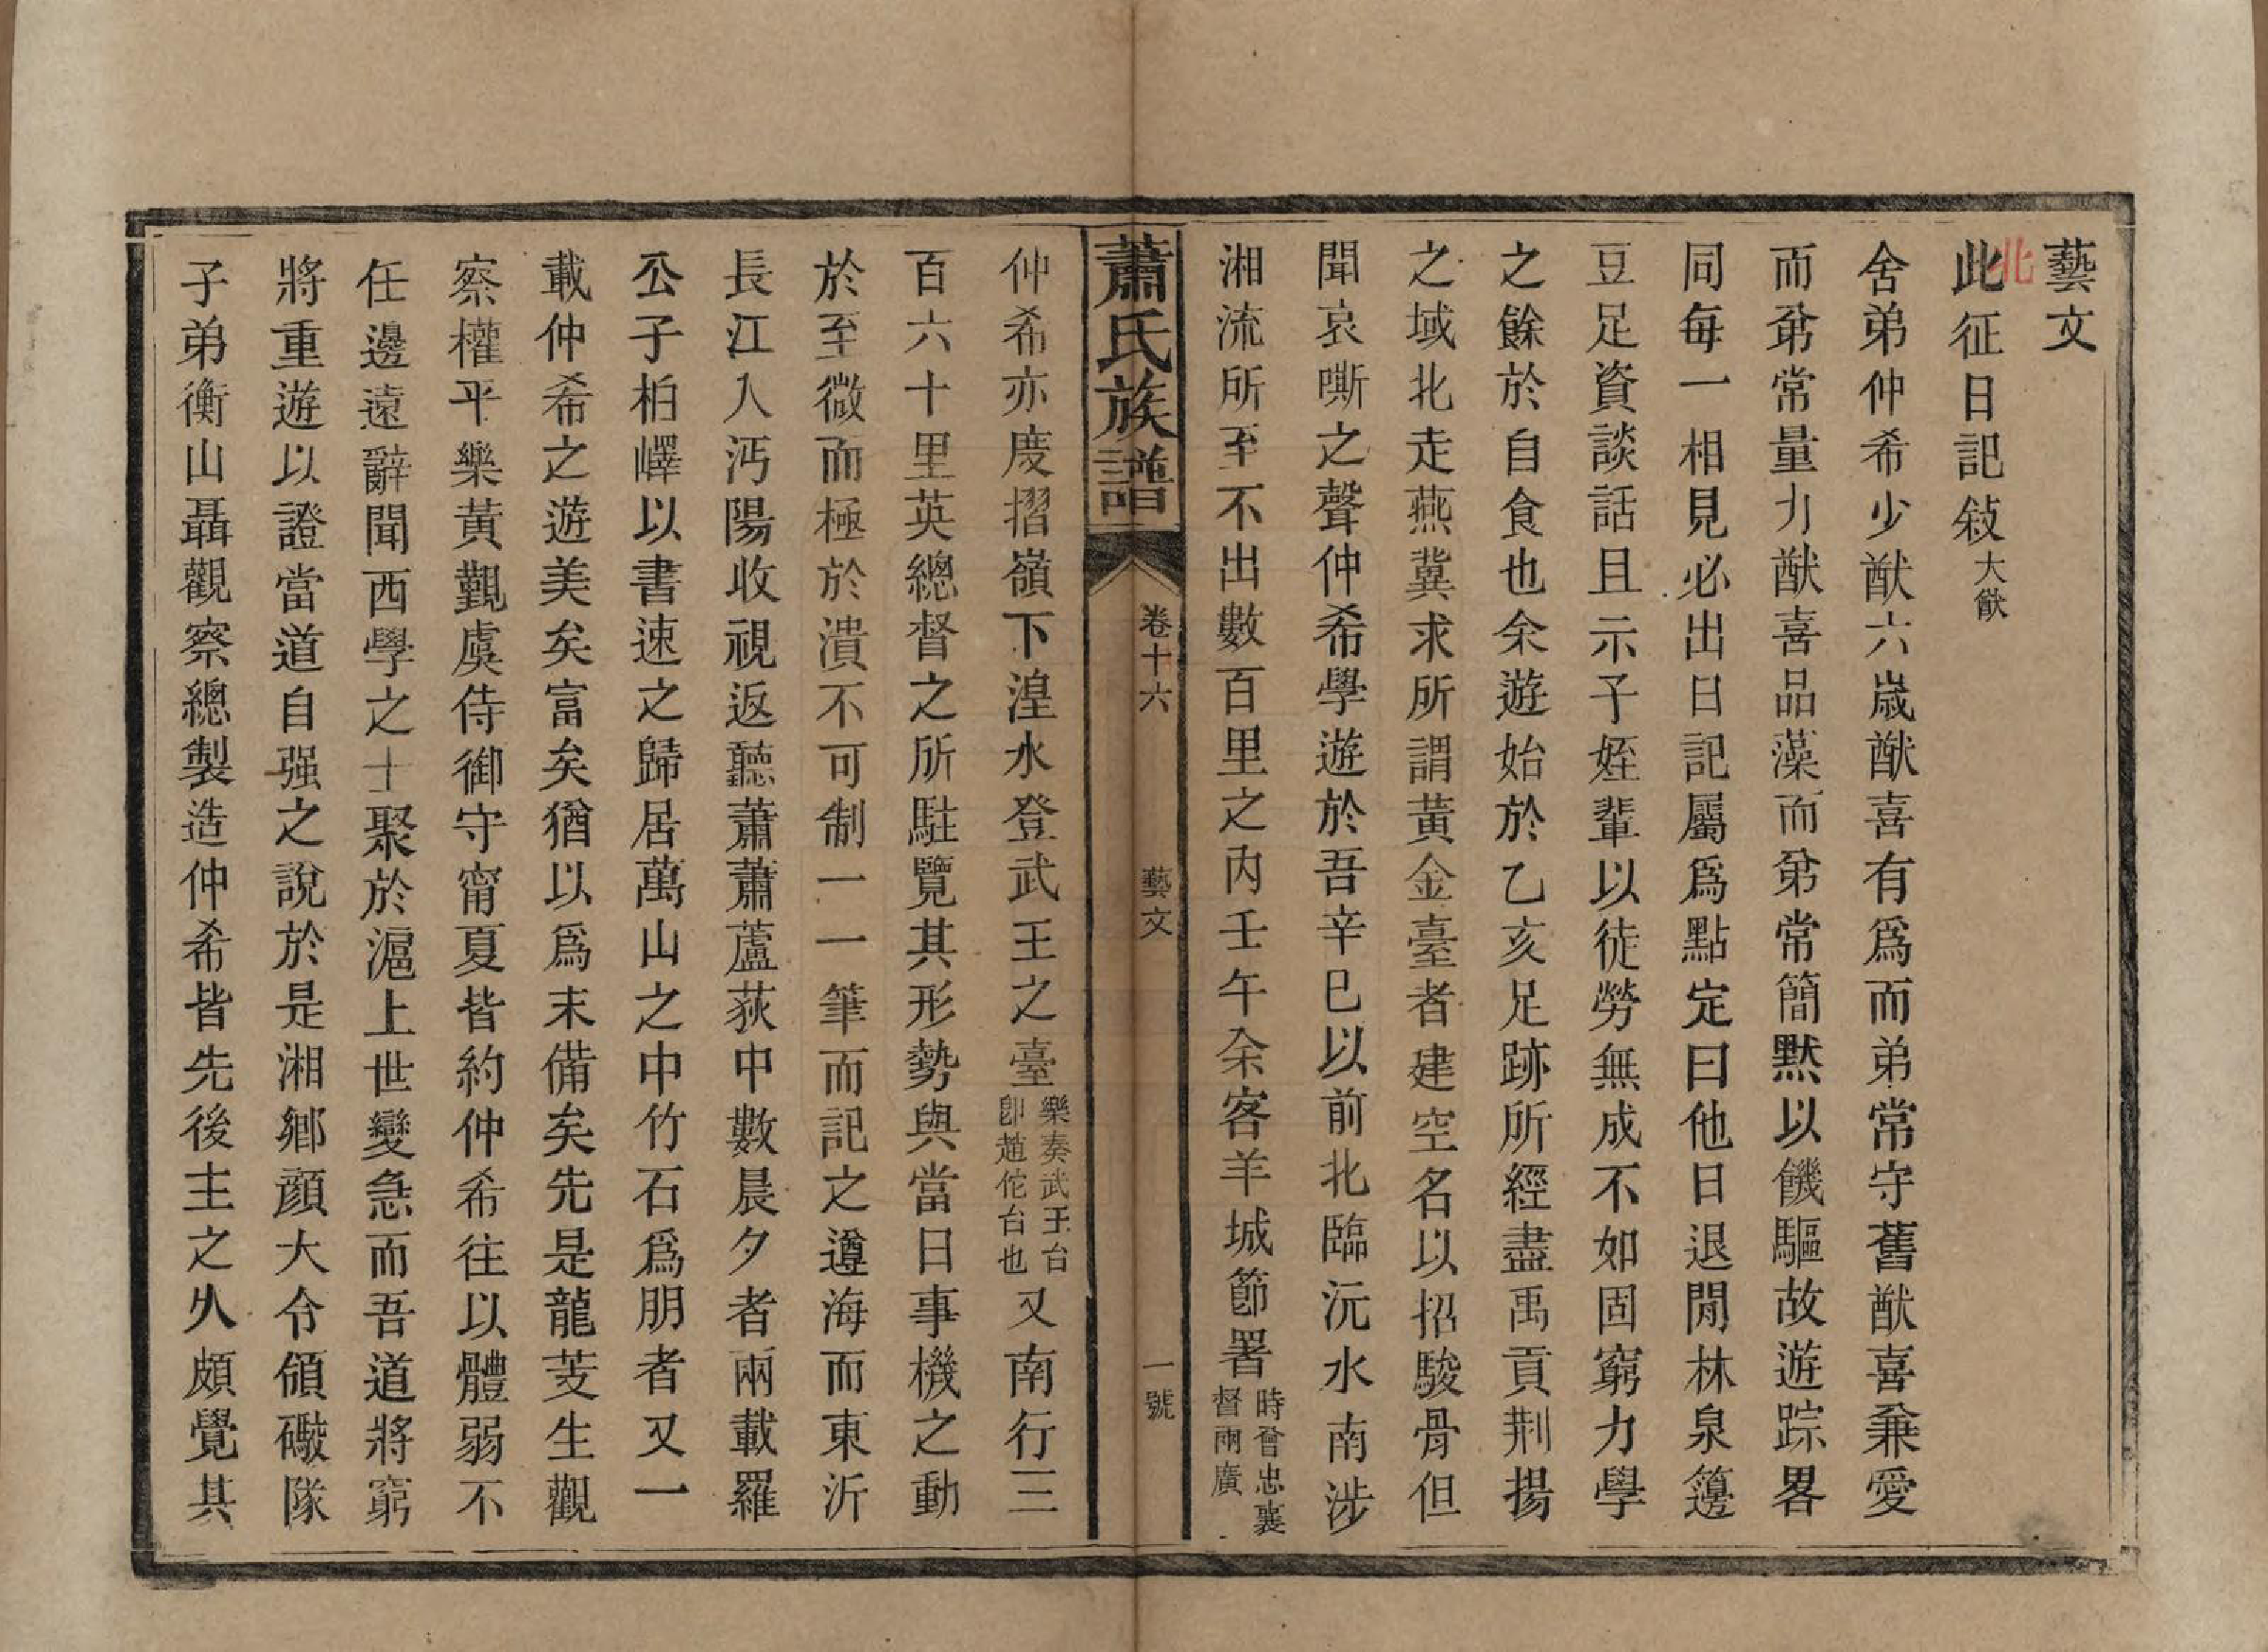 藝文
此征日記敍大猷
北
舍弟仲希少猷六歳猷喜有爲而弟常守舊猷喜兼愛
而弟常量力猷喜品藻而弟常簡默以饑驅故遊踪畧
同每一相見必出日記屬爲點定曰他日退閒林泉籩
豆足資談話且示子姪輩以徒勞無成不如固窮力學
之餘於自食也余遊始於乙亥足跡所經盡禹貢荆揚
之域北走燕冀求所謂黃金臺者建空名以招駿骨但
聞哀嘶之聲仲希學遊於吾辛巳以前北臨沅水南涉
湘流所至不出數百里之內壬午余客羊城節署時曾忠襄督兩廣
蕭氏族譜
卷十六
藝文
一號
仲希亦度摺嶺下湟水登武王之臺樂奏武王台卽趙佗台也又南行三
百六十里英總督之所駐覽其形勢與當日事機之動
於至微而極於潰不可制一一筆而記之遵海而東沂
長江入沔陽收視返聽蕭蕭蘆荻中數晨夕者兩載羅
公子柏嶧以書速之歸居萬山之中竹石爲朋者又一
載仲希之遊美矣富矣猶以爲未備矣先是龍芰生觀
察權平樂黃覲虞侍御守甯夏皆約仲希往以體弱不
任邊遠辭聞西學之士聚於滬上世變急而吾道將窮
將重遊以證當道自强之說於是湘鄉顏大令領礮隊
子弟衡山聶觀察總製造仲希皆先後主之久頗覺其